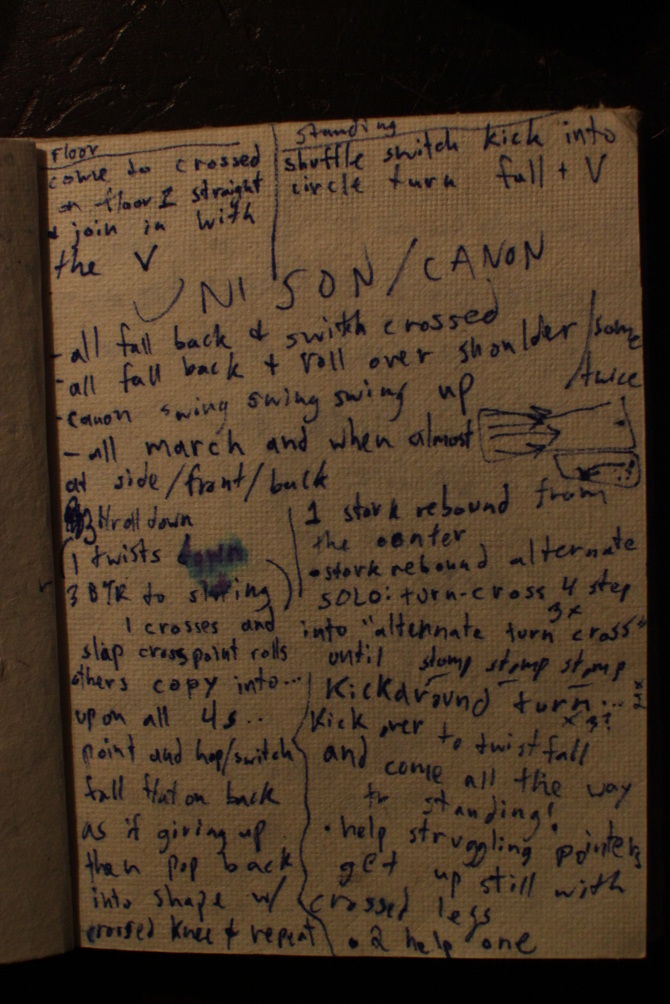 Floor
come to crossed
on floor 1 straight
& join in with
the V
standing
shuffle switch kick into
circle turn full + V
UNISON/CANON
- all fall back & swith crossed
- all fall back + roll over shoulder / some twice
- canon swing swing swing up
- all march and when almost
at side/front/back
roll down
1 twists down
3 BYR to
1 crosses and
slap cross point rolls
others copy into...
up on all 4s..
point and hop/switch
fall flat on back
as if giving up
then pop back
into shape w/
crossed knee & repeat
1 stork rebound from
the center
• stork rebound alternate
SOLO: turn-cross 4 step
3x
into "alternate turn cross"
until stomp stomp stomp
Kickaround turn... 2x
x 3?
Kick over to twist fall
and come all the way
to standing!
• help struggling pointers
get up still with
crossed legs
• 2 help one